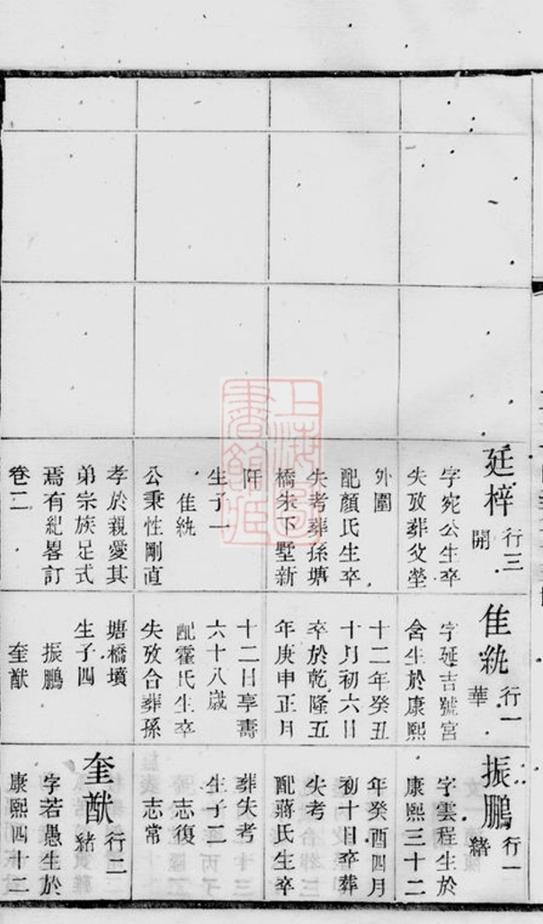 廷梓 行三 開
字宛公生卒
失攷葬父塋
外圍
配顏氏生卒
失考葬孫塘
橋朱下墅新
阡
生子一
佳統
公秉性剛直
孝於親愛其
弟宗族足式
焉有紀畧訂
卷二
佳統 行一 華
字延吉號宮
舍生於康熙
十二年癸丑
十月初六日
卒於乾隆五
年庚申正月
十二日享壽
六十八歲
配霍氏生卒
失攷合葬孫
塘橋墳
生子四
振鵬
奎猷
振鵬 行一 緒
字雲程生於
康熙三十二
年癸酉四月
初十日卒葬
失考
配蔣氏生卒
葬失考
生子二
志復
志常
奎猷 行二 緒
字若愚生於
康熙四十二
上海圖書館藏